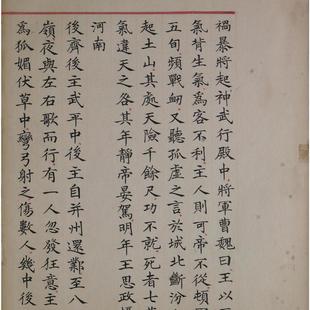 禍暴將起神武行殿中將軍曹魏曰王以
氣背生氣爲客不利主人則可帝不從頓
五旬頻戰衄又聽孤虛之言於城北斷汾
起土山其處天險千餘尺功不就死者七
氣違天之咎其年靜帝晏駕明年王思政
河南
後齊後主武平中後主自并州還鄴至八
嶺夜與左右歌而行有一人忽發狂意主
爲狐媚伏草中彎弓射之傷數人幾中後